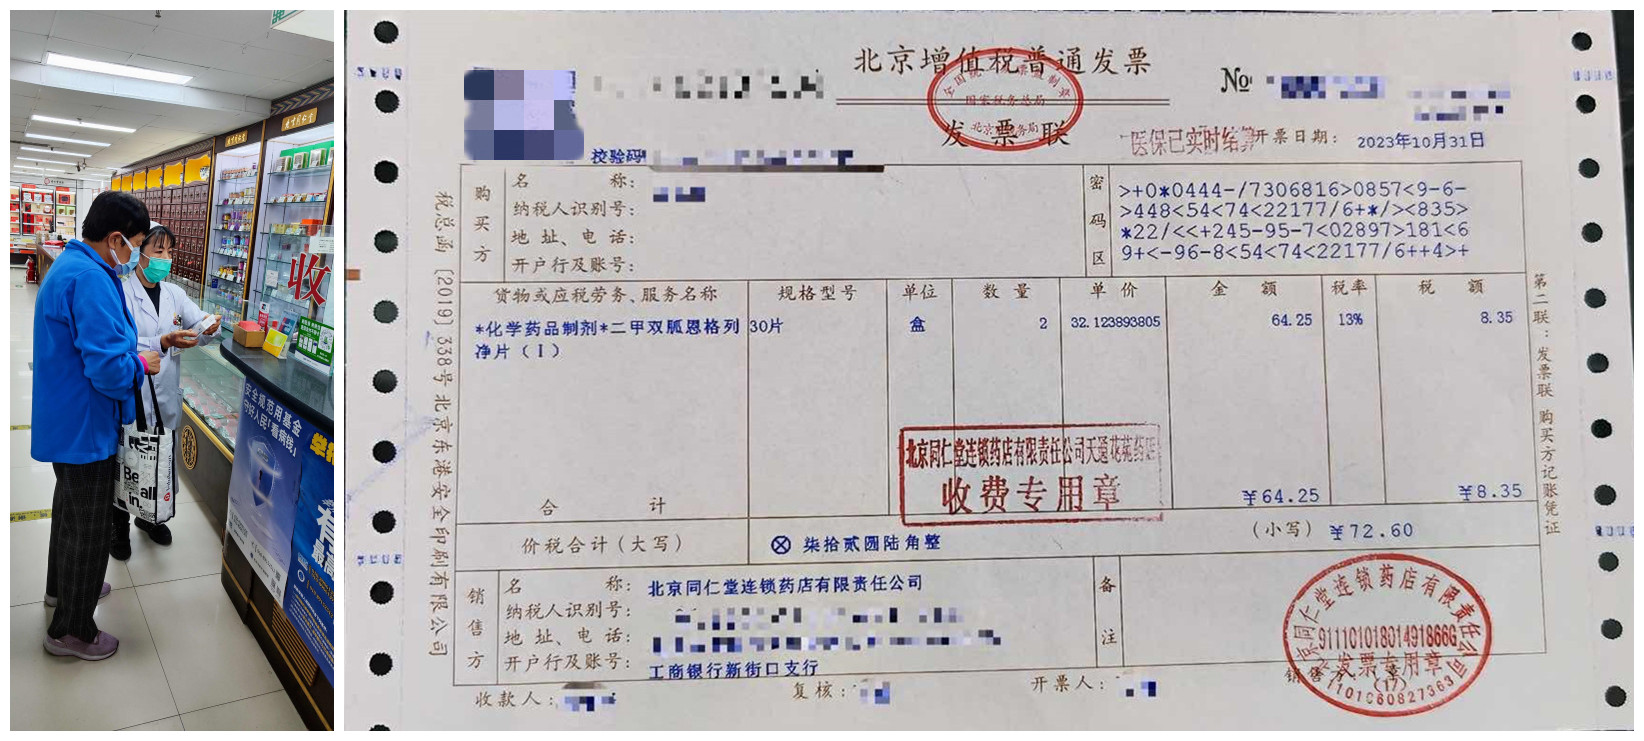 收
安全规范用基金
守好人民“看病钱”
Be
all
in.
北京增值税普通发票
全国统一发票监制章
国家税务总局
北京市税务局
发票联
№
医保已实时结算
开票日期：
2023年10月31日
校验码
税总函〔2019〕338号北京东港安全印刷有限公司
购买方
名称：
纳税人识别号：
地址、电话：
开户行及账号：
密码区
>+0*0444-/7306816>0857<9-6-
>448<54<74<22177/6+*/><835>
*22/<<+245-95-7<02897>181<6
9+<-96-8<54<74<22177/6++4>+
货物或应税劳务、服务名称 规格型号 单位 数量 单价 金额 税率 税额
*化学药品制剂*二甲双胍恩格列 30片 盒 2 32.123893805 64.25 13% 8.35
净片（Ⅰ）
北京同仁堂连锁药店有限责任公司天通花苑药店
收费专用章
合计 ¥64.25 ¥8.35
价税合计（大写） ⊗ 柒拾贰圆陆角整 （小写） ¥72.60
销售方
名称： 北京同仁堂连锁药店有限责任公司
纳税人识别号：
地址、电话：
开户行及账号： 工商银行新街口支行
备注
北京同仁堂连锁药店有限责任公司
91110101801491866G
发票专用章
(17)
1101060827363
收款人：
复核：
开票人：
第二联：发票联 购买方记账凭证